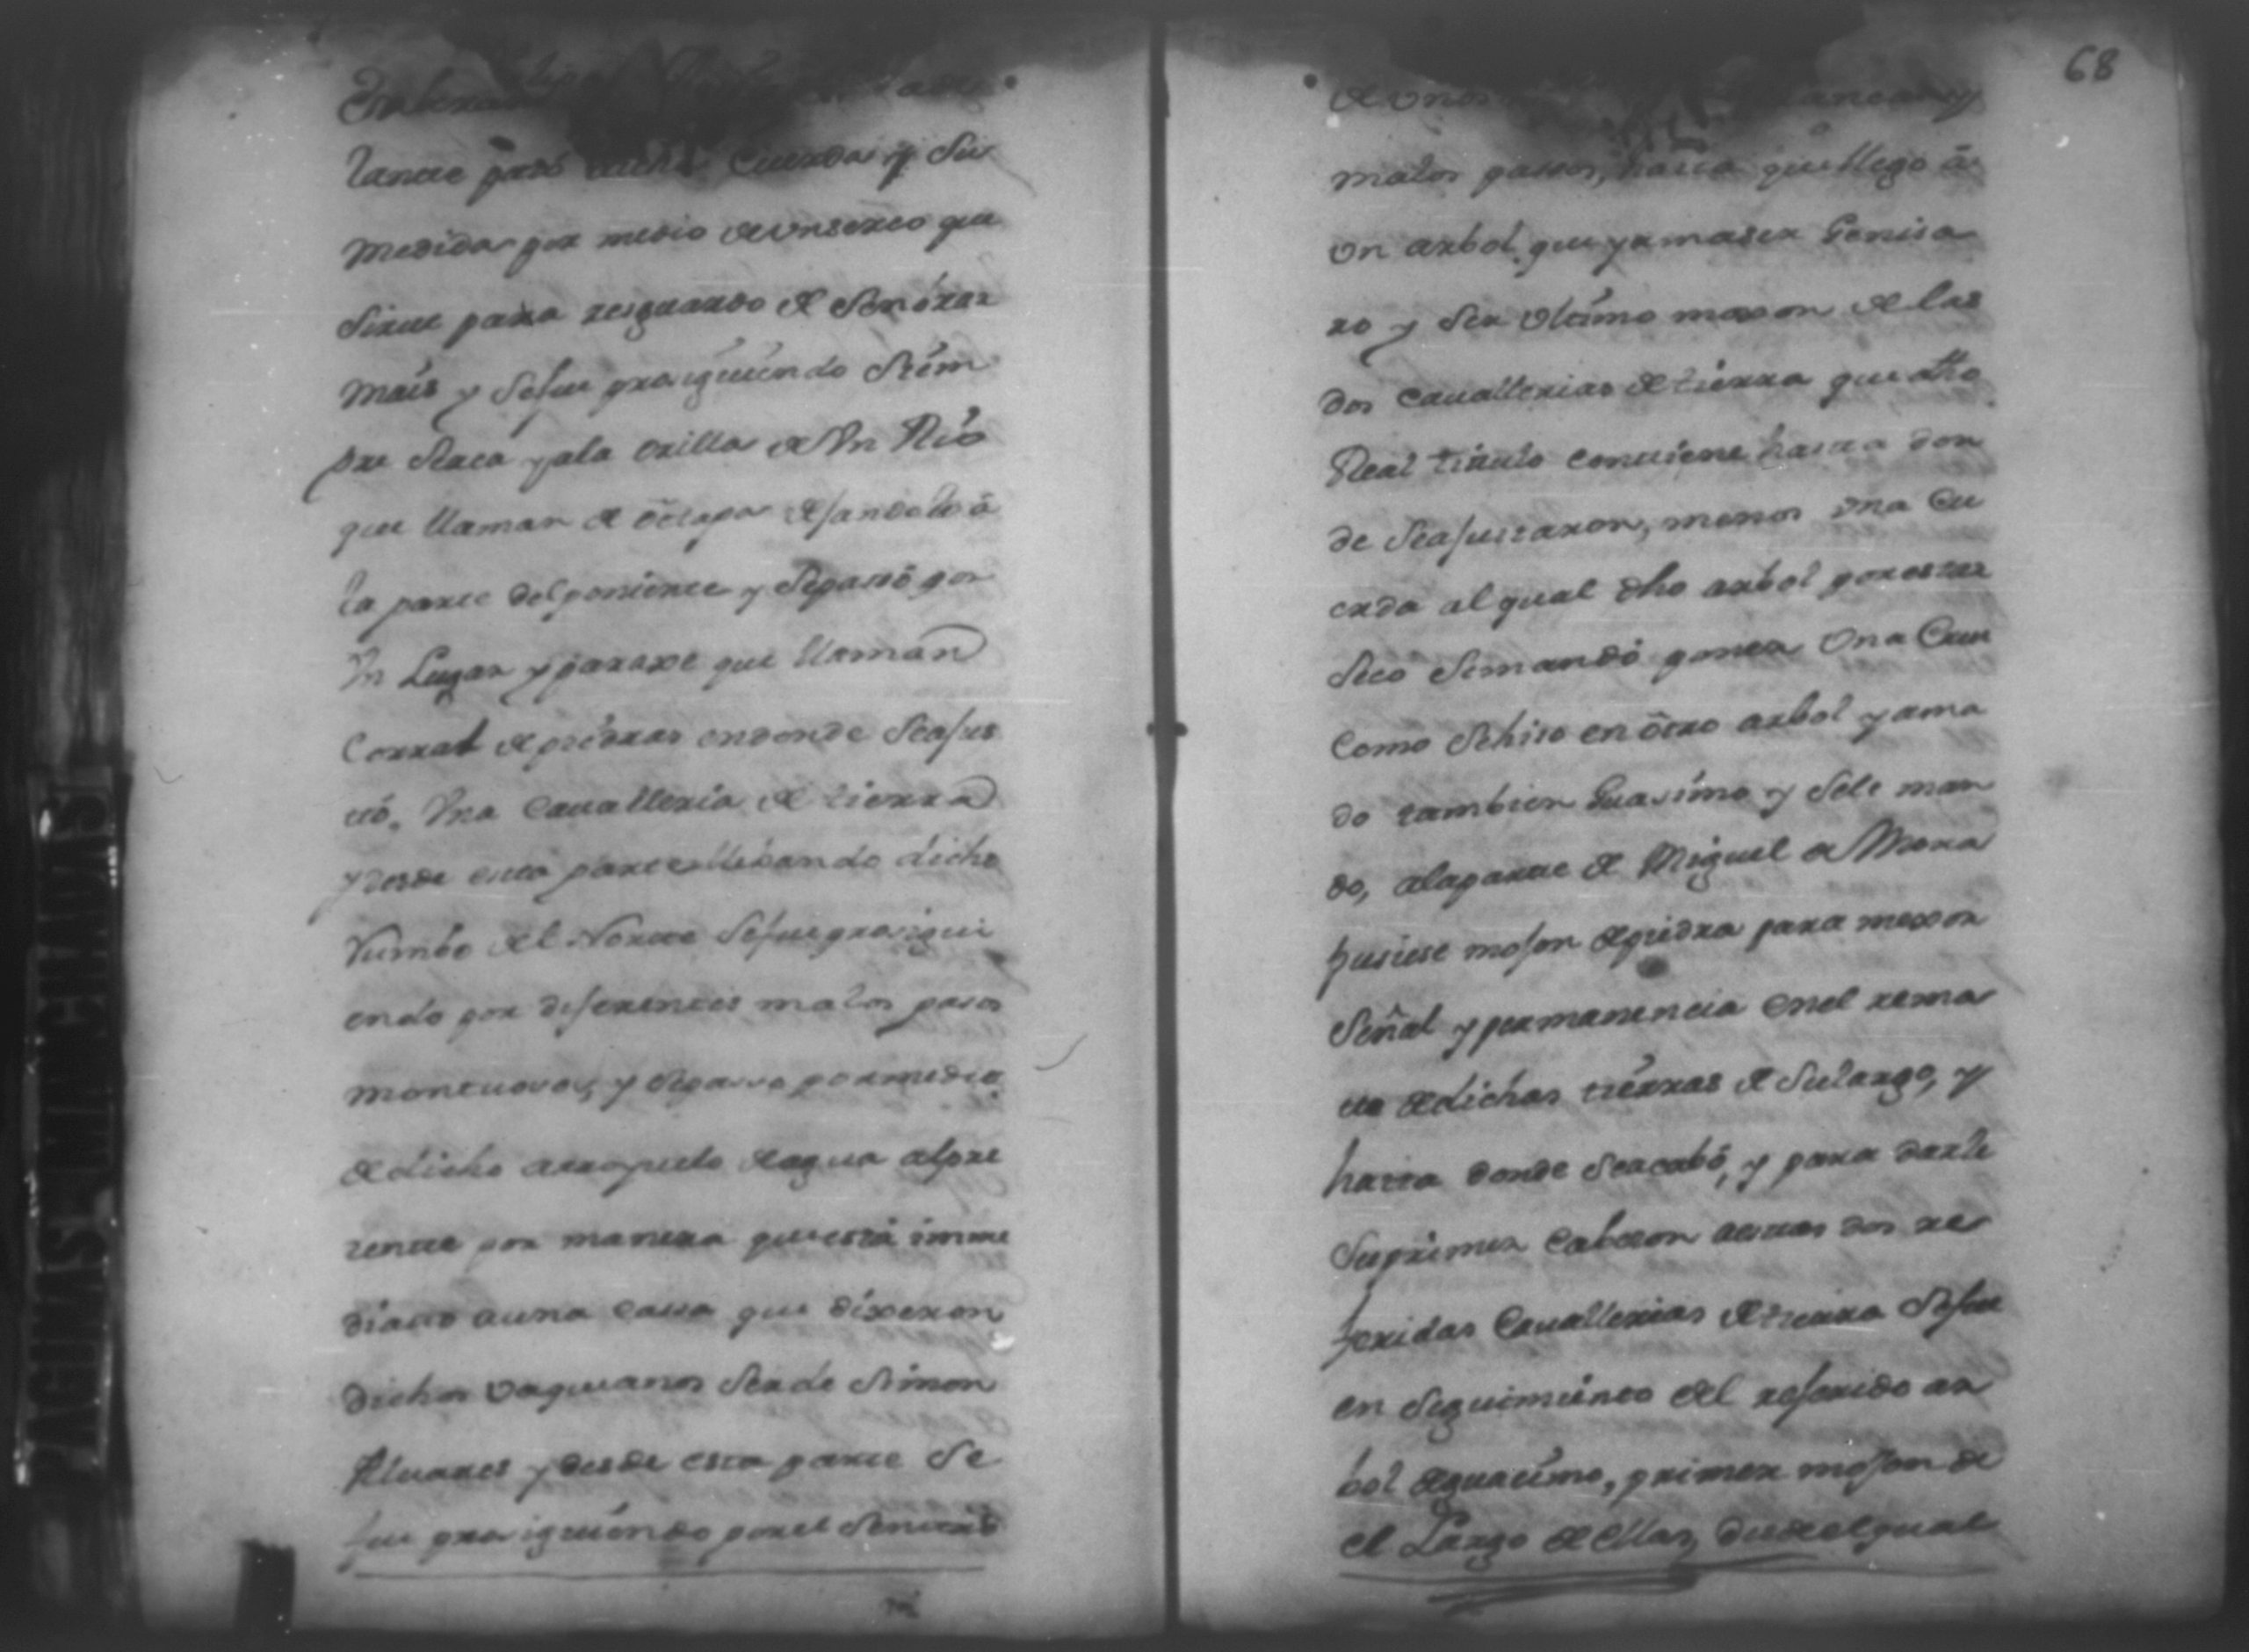 tante pasó dicha Cuerda y Su
medida por medio de un serco que
Sirue para resguardo de Sembrar
Mais y Sefue prosiguiendo Siém
pre Serca y ala orilla de Vn Rio
que llaman de dejandolo â
la parte del poniente y Sepassó por
Vn Lugar y paraxe que llaman
Corral de piedras endonde Seajus
tó, Vna Cauallexia de tierra
y desde esta parte llebando dicho
Rumbo del Norte Sefue prosigui
endo por diferentes malos pasos
montuosos, y Sepasso por medio
de dicho arroyuelo de agua alpre
sente por manera que está imme
diato auna cassa que dixeron
dichos vaquianos Serde Simon
Aluares y desde esta parte Se
fue prosiguiendo por el
68
de unos y
malos passos, hasta que llego â
vn arbol que yamaser Genisa
ro y Ser vltimo moxon de las
dos Cauallerias de tierra que dho
Real titulo contiene hasta don
de Seajustaron, menos vna Cu
erda al qual dho arbol por estar
Seco Semandó poner Vna Cruz
Como Sehiso en ótro arbol yama
do tambien Guasimo y Sele man
do, alaparte de Miguel de Mora
pusiese mojon de piedra para mexor
Señal y permanencia enel rema
te de dichas tiérras de Sulargo, y
hasta donde Seacabó, y para darle
Suprimer Cabeson aestas dos re
feridas Cauallerias de tierra Sefue
en Seguimiento del referido ar
bol de guasimo, primer mojon de
el Largo de ellas, desde el qual
PAGINAS MANCHADAS